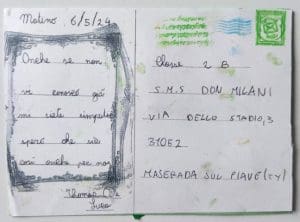 Molino 6/5/24
Anche se non
vi conosco già
mi siete simpatici
spero che sia
così anche per noi
Thomas
Luca
Classe 2 B
S.M.S DON MILANI
VIA DELLO STADIO, 3
31052
MASERADA SUL PIAVE (TV)